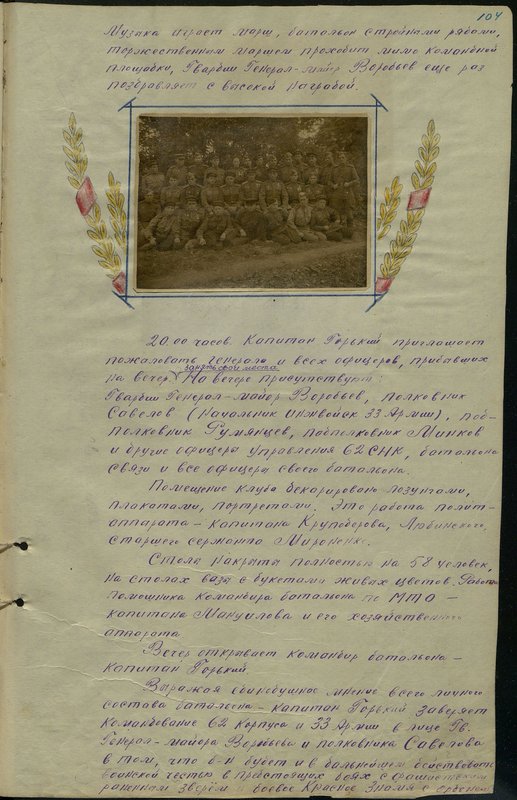 104
Музыка играет марш, батальон стройными рядами,
торжественным маршем проходит мимо командной
площадки, Гвардии Генерал-майор Воробьев еще раз
поздравляет с высокой наградой.
20.00 часов. Капитан Горький приглашает
пожаловать генерала и всех офицеров, прибывших
на вечер, занять свои места. На вечере присутствует:
Гвардии Генерал-майор Воробьев, полковник
Савелов (Начальник инжвойск 33 Армии), под-
полковник Румянцев, подполковник Минков
и другие офицеры управления 62 СНК, батальона
связи и все офицеры своего батальона.
Помещение клуба декорировано лозунгами,
плакатами, портретами. Это работа полит-
аппарата – капитана Круподерова, Любинского,
старшего сержанта Мироненко.
Столы накрыты полностью на 58 человек,
на столах вазы с букетами живых цветов. Работа
помошника командира батальона по МТО –
капитана Мануилова и его хозяйственного
аппарата
Вечер открывает командир батальона –
капитан Горький
Выражая единодушное мнение всего личного
состава батальона – капитан Горький заверяет
командование 62 корпуса и 33 Армии в лице Гв.
Генерал-майора Воробьева и полковника Савелова
в том, что б-н будет и в дальнейшем действовать
воинской честью в предстоящих боях с фашистским
раненным зверем и боевое Красное Знамя с орденом